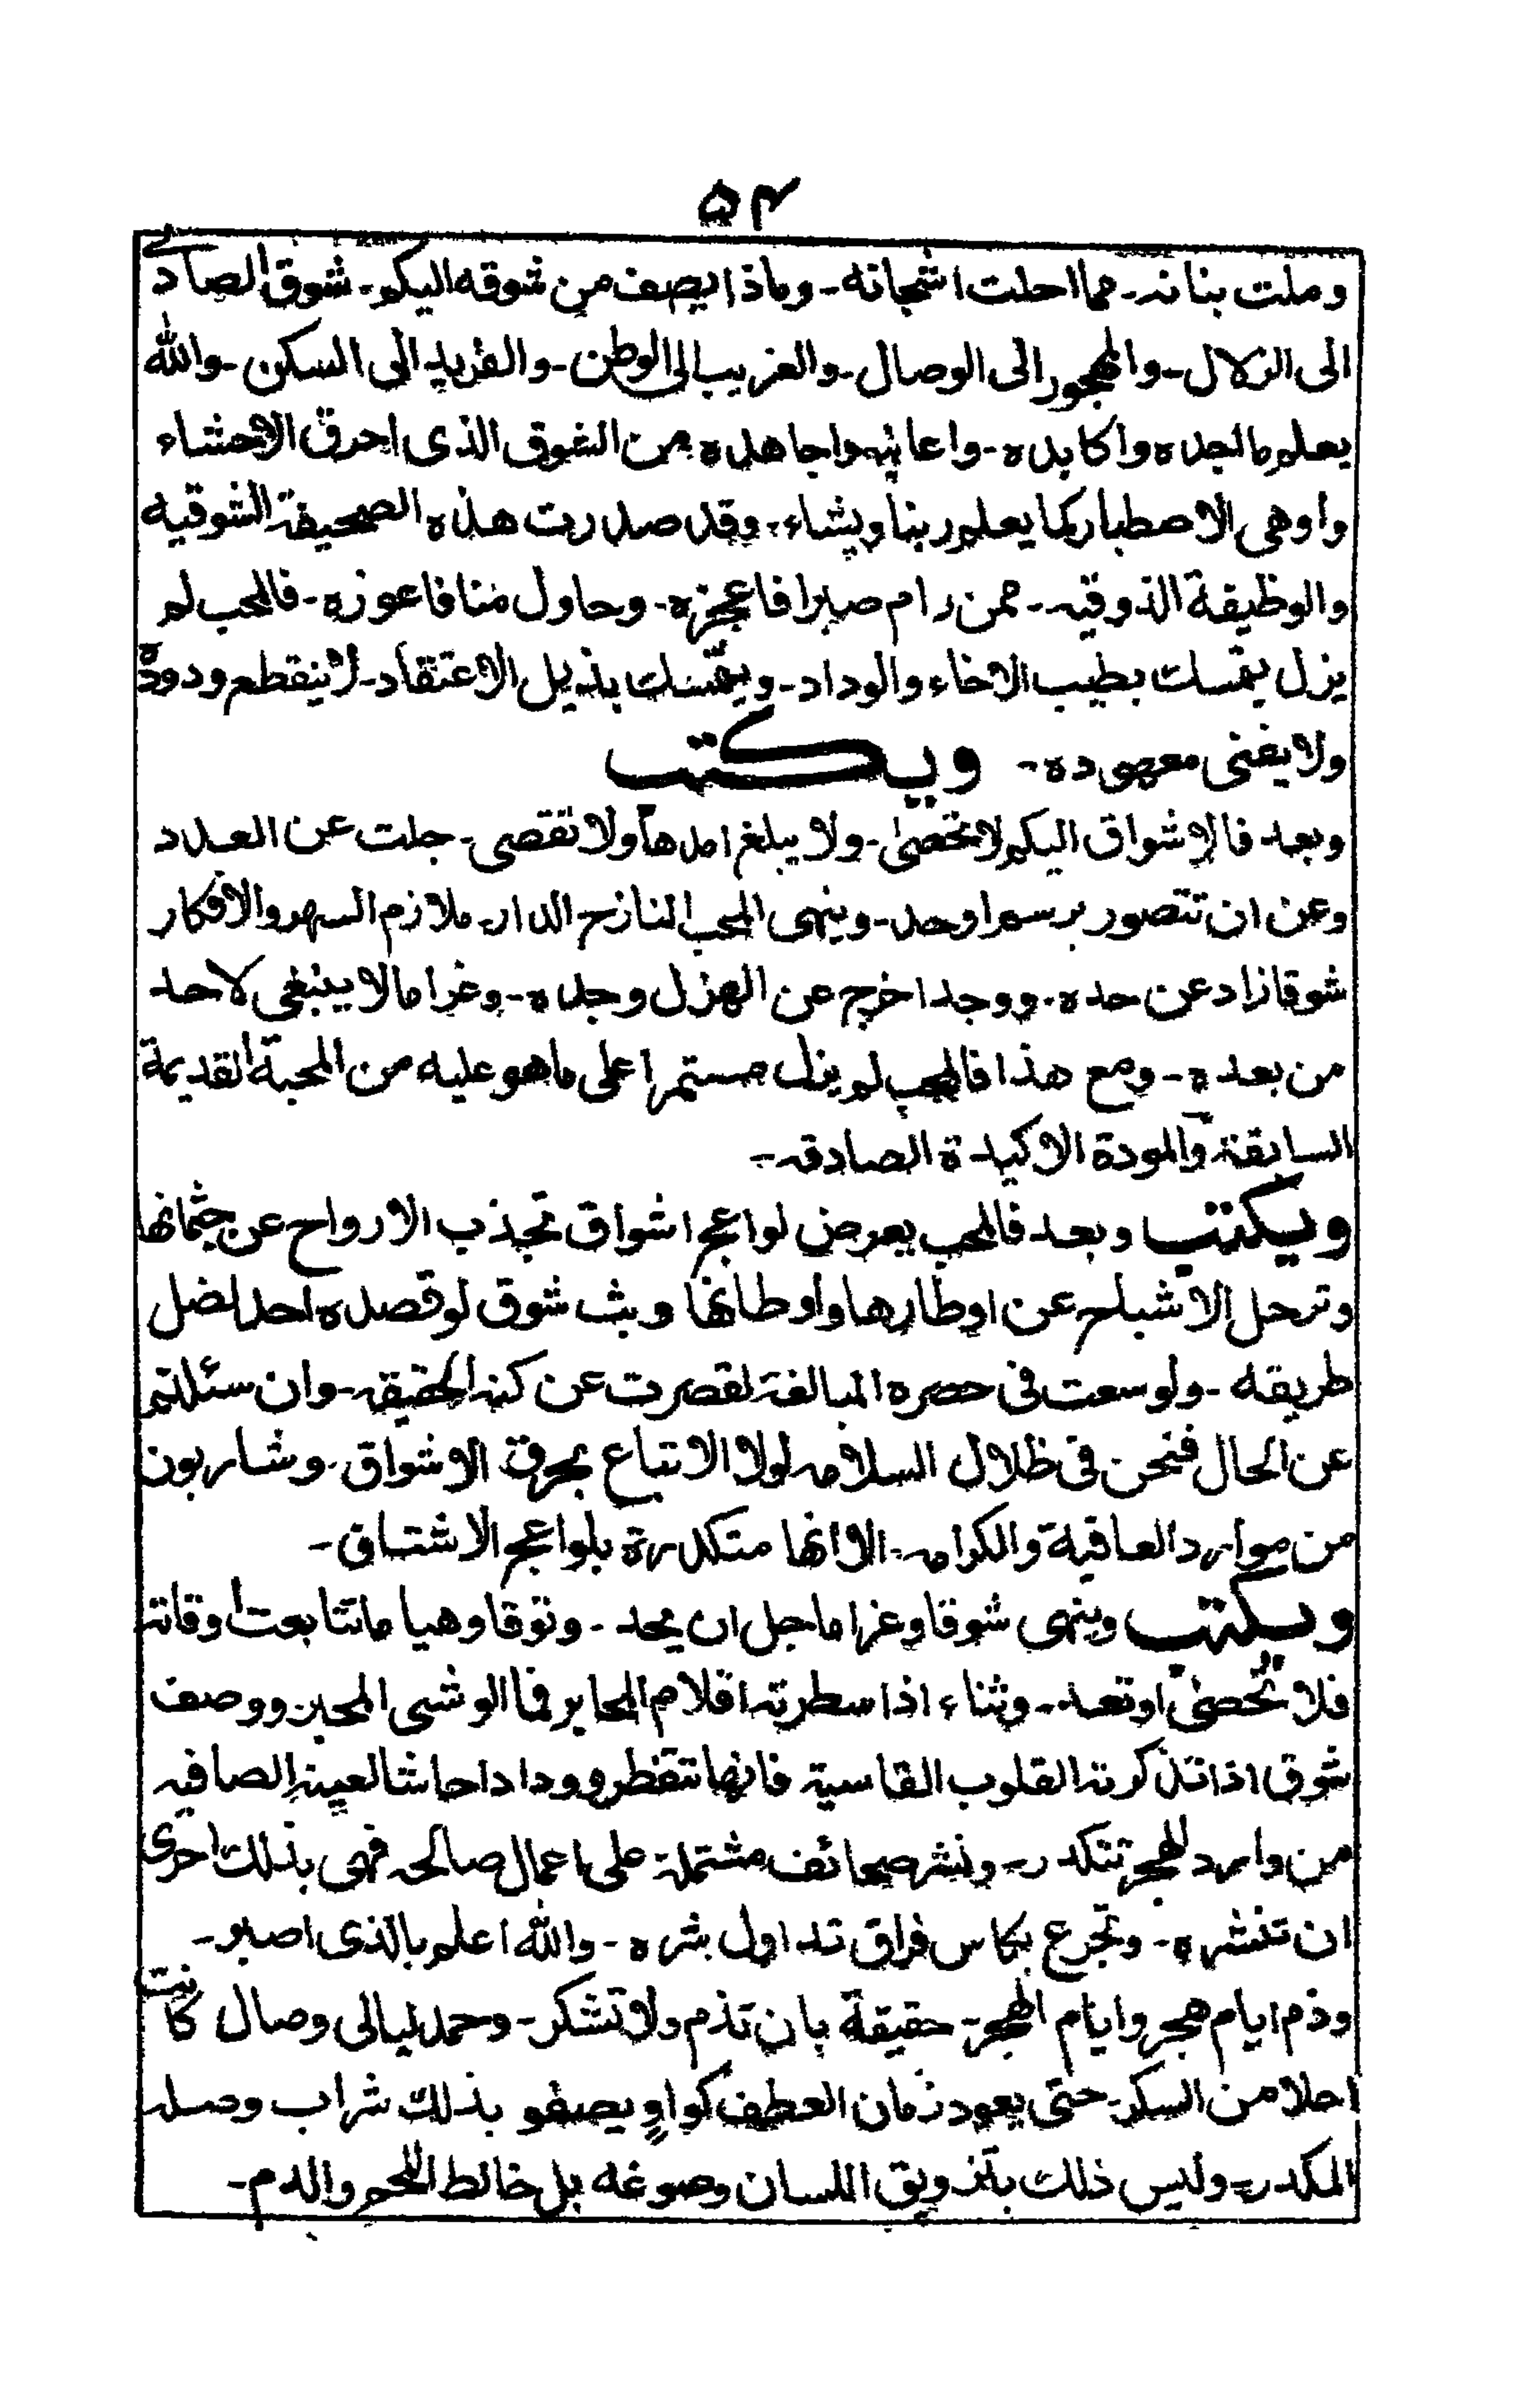 ۵۴
وملت بنانه۔ مما احلت اشجانه۔ وماذا يصف من شوقه اليكم۔ شوق الصادى
الى الزلال۔ والمهجور الى الوصال۔ والغريب الى الوطن۔ والفريد الى السكن۔ والله
يعلم ما اجده واكابده۔ واعانيه واجاهده من الشوق الذى احرق الاحشاء
واوهى الاصطبار كما يعلم ربنا ويشاء۔ وقد صدرت هذه الصحيفة الشوقيه
والوظيفة الذوقيه۔ ممن رام صبرا فاعجزه۔ وحاول منافا عوزه۔ فالمحب لم
يزل يتمسك بطيب الاخاء والوداد۔ ويتمسك بذيل الاعتقاد۔ لا ينقطع ودوده
ولا يفنى معهوده۔ ويكتب
وبعد فالاشواق اليكم لا تحصى۔ ولا يبلغ امدها ولا تقصى۔ جلت عن العدد
وعن ان تتصور برسم او حد۔ وينهى المحب النازح الدار۔ ملازم السهر والافكار
شوقا زاد عن حده۔ ووجدا خرج عن الهزل وجده۔ وغراما لا ينبغى لاحد
من بعده۔ ومع هذا فالمحب لم يزل مستمرا على ما هو عليه من المحبة القديمة
السابقة والمودة الاكيدة الصادقه۔
ويكتب وبعد فالمحب يعرض لواعج اشواق تجذب الارواح عن جثمانها
وترحل الاشباح عن اوطارها واوطانها وبث شوق لو قصده احد لضل
طريقه۔ ولو سعت فى حصره المبالغة لقصرت عن كنه الحقيقه۔ وان سئلتم
عن الحال فنحن فى ظلال السلامه لولا الاتباع بحرق الاشواق۔ وشاربون
من موارد العافية والكرامه۔ الا انها متكدرة بلواعج الاشتياق۔
ويكتب وينهى شوقا وغراما جل ان يحد۔ وتوقا وهيا ما تتابعت اوقاته
فلا تحصى او تعد۔ وثناء اذا سطرته اقلام المحابر فما الوشى المحبر ووصف
شوق اذا تذكرته القلوب القاسية فانها تتفطر وودادا حاشا لعينه الصافيه
من وارد الهجر تتكدر۔ ونشر صحائف مشتملة على اعمال صالحه فهى بذلك احرى
ان تنشره۔ وتجرع بكاس فراق تداول بشره۔ والله اعلم بالذى اصبر۔
وذم ايام هجر وايام الهجر۔ حقيقة بان تذم ولا تشكر۔ وحمد ليالى وصال كانت
احلا من السكر۔ حتى يعود زمان العطف كوا ويصفو بذلك شراب وصله
المكدر۔ وليس ذلك بتزويق اللسان وصوغه بل خالط اللحم والدم۔